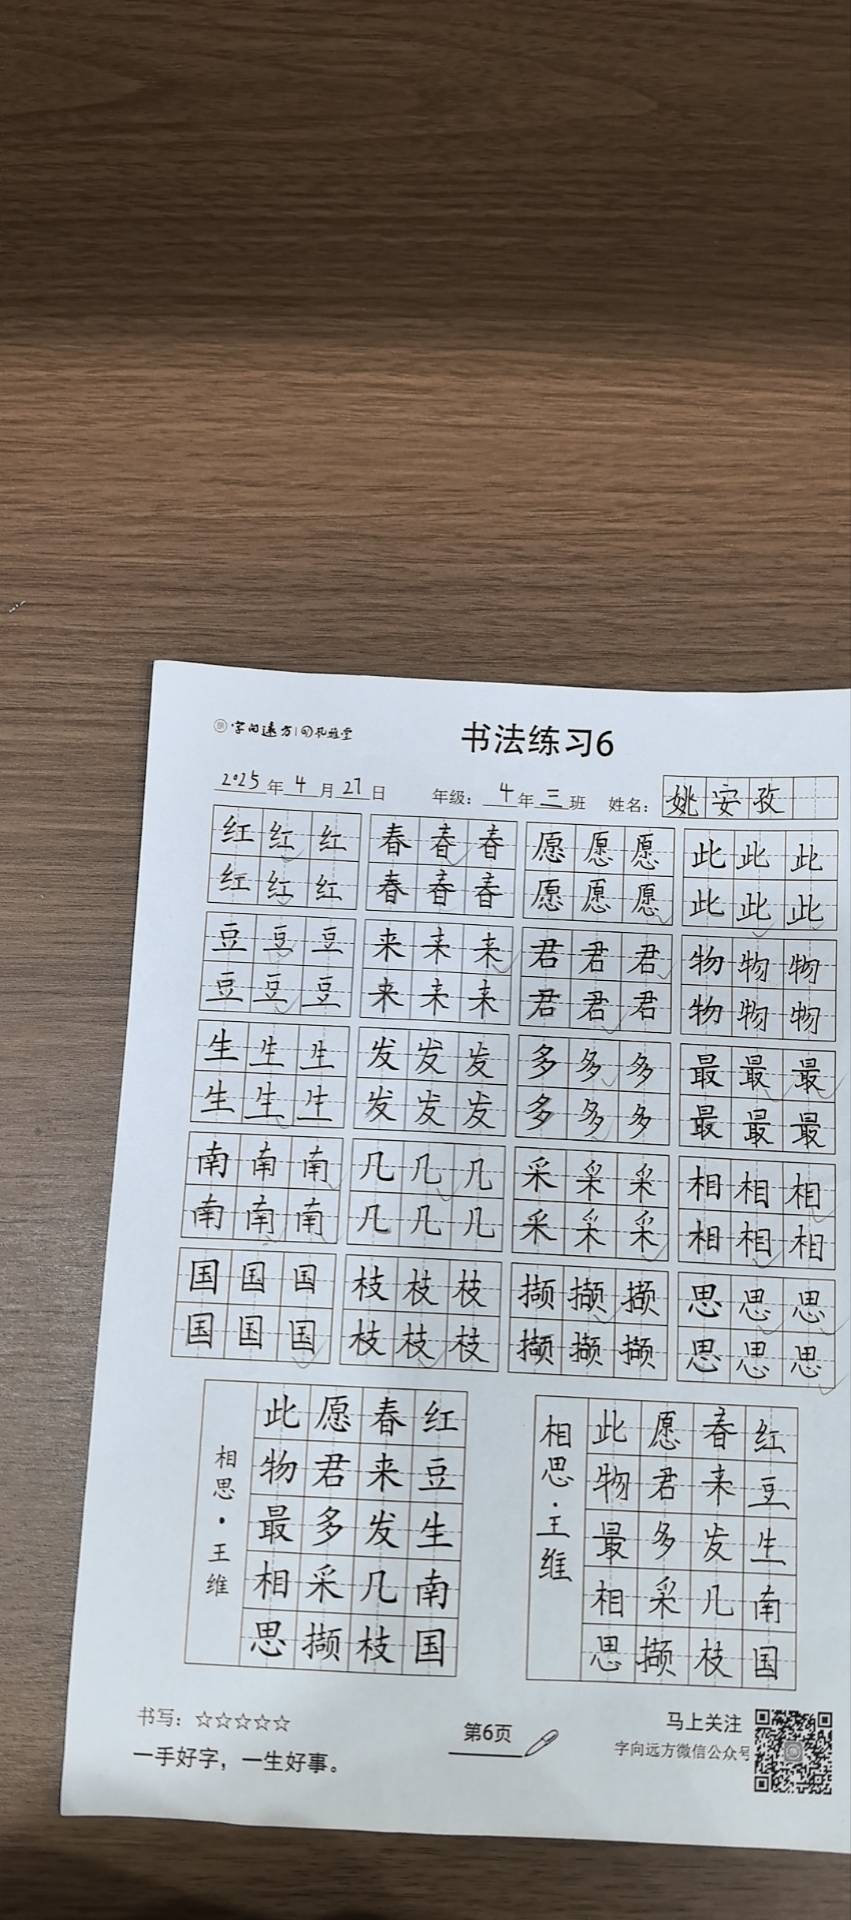 字向远方|
书法练习6
2025年4月27日 年级：4年三班 姓名：姚安孜
红红红 春春春 愿愿愿 此此此
红红红 春春春 愿愿愿 此此此
豆豆豆 来来来 君君君 物物物
豆豆豆 来来来 君君君 物物物
生生生 发发发 多多多 最最最
生生生 发发发 多多多 最最最
南南南 几几几 采采采 相相相
南南南 几几几 采采采 相相相
国国国 枝枝枝 撷撷撷 思思思
国国国 枝枝枝 撷撷撷 思思思
红豆生南国
春来发几枝
愿君多采撷
此物最相思
相思·王维
红豆生南国
春来发几枝
愿君多采撷
此物最相思
相思·王维
书写：☆☆☆☆☆
一手好字，一生好事。
第6页
马上关注
字向远方微信公众号